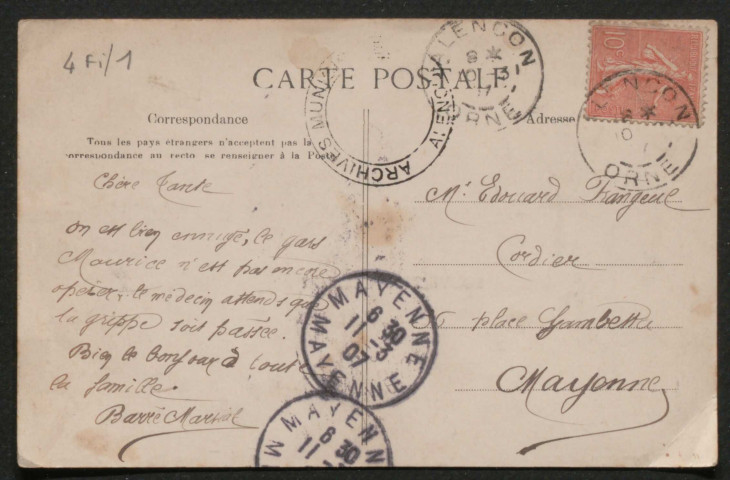 4 Fi/1
CARTE POSTALE
Correspondance
Tous les pays étrangers n'acceptent pas la
correspondance au recto, se renseigner à la Poste
Chère Tante
on est bien ennuyé, le gars
Maurice n'est pas encore
opérer, le médecin attends que
la grippe soit passée.
Bien le bonjour à toute
la famille.
Barré Marsial
Adresse
Mr Edouard Fangeul
Cordier
place Gambetta
Mayenne
ALENCON
8 *
10 -3
ORNE
ALENCON
8 *
10
ORNE
ARCHIVES MUNI
ALENCON
MAYENNE
6 30
11 -3
07
MAYENNE
MAYENN
6 30
11
10